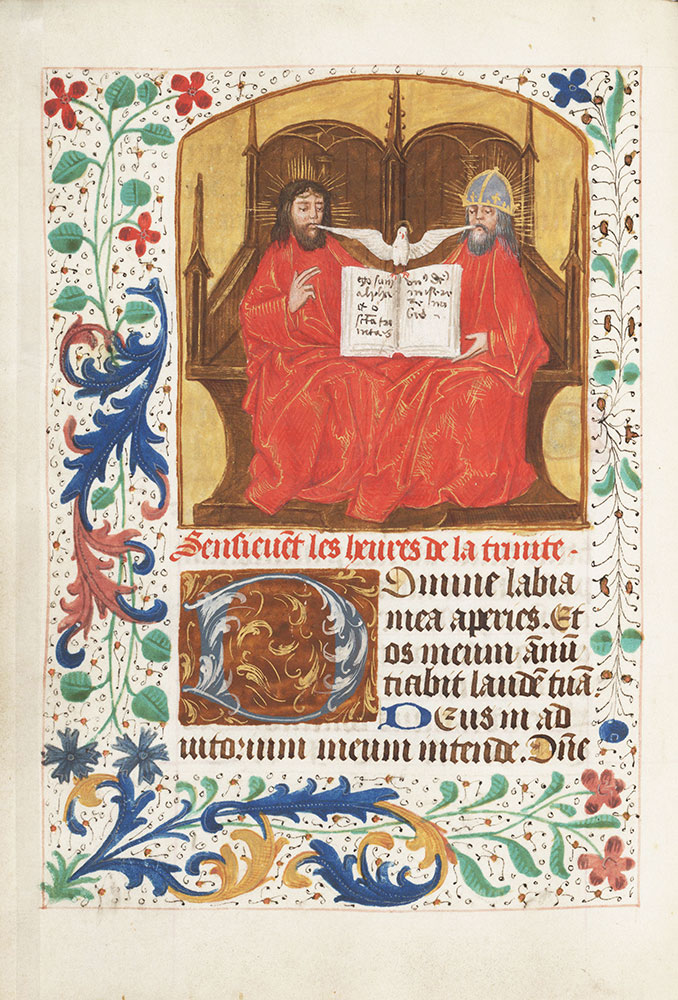 ego sum
alpha
et o
Sensieuēt les heures de la trinite.
Domine labia
mea aperies. Et
os meum ānū
tiabit laudē tuā
Deus in ad
iutorium meum intende. Dn̄e